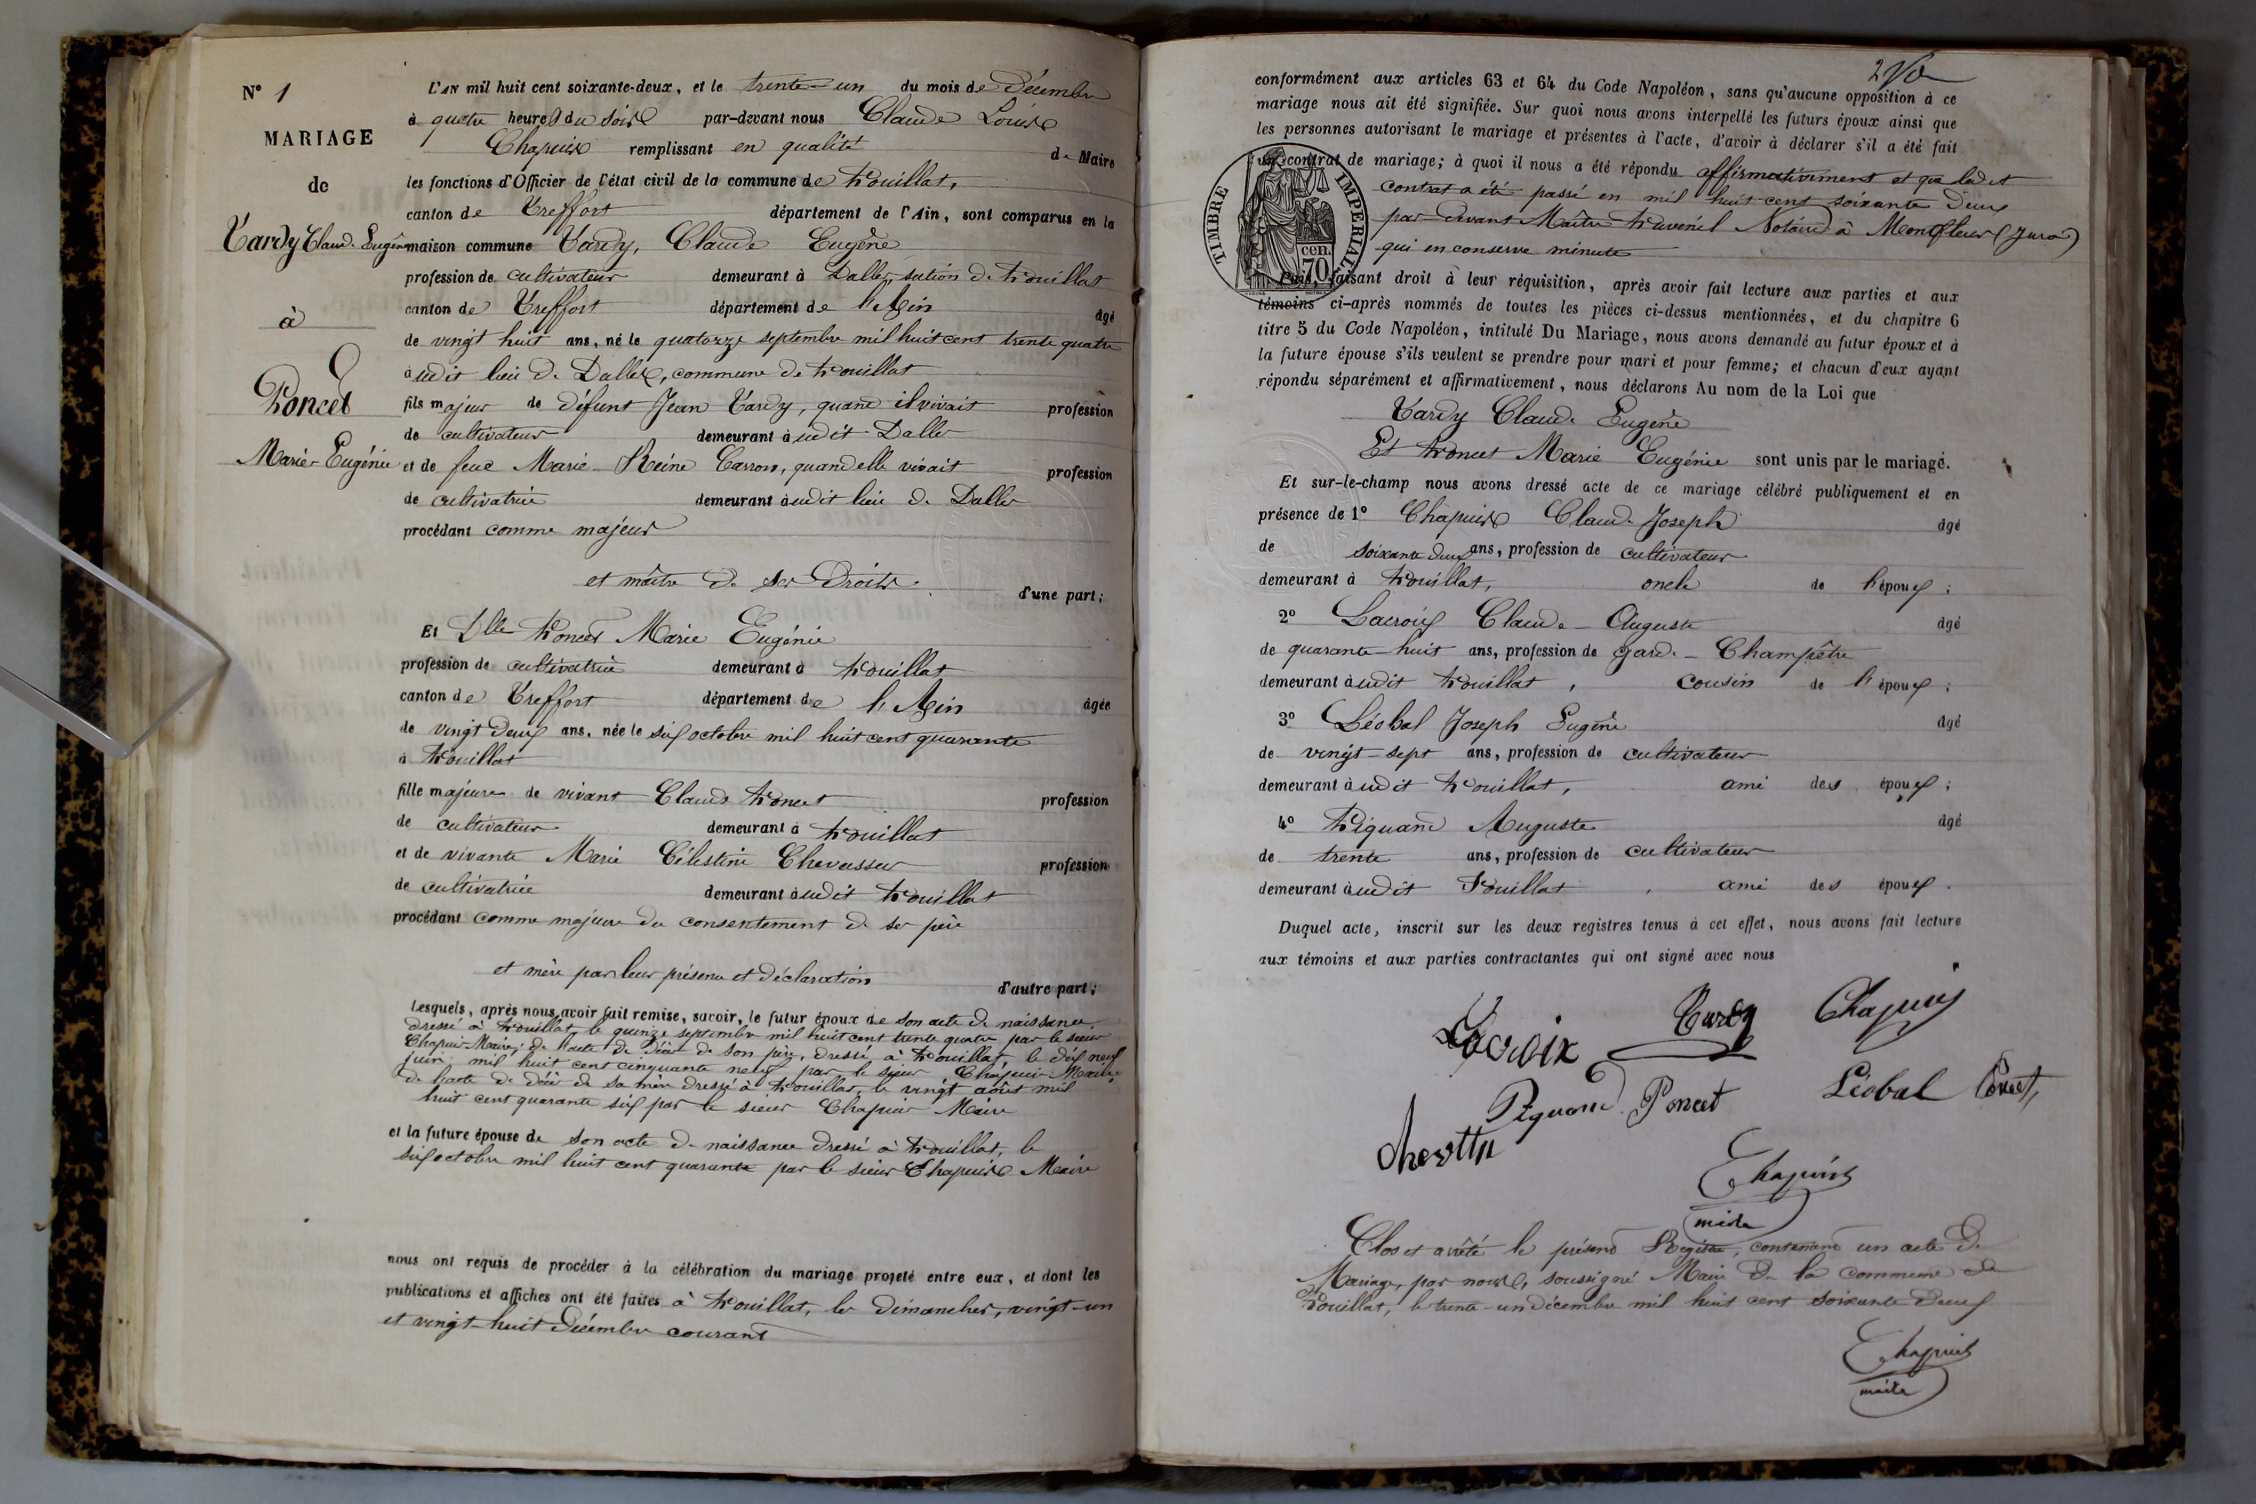 N° 1
MARIAGE
de
Tardy Claude Eugène
à
Poncet
Marie-Eugénie
L'AN mil huit cent soixante-deux, et le trente-un du mois de Décembre
à quatre heures du soir par-devant nous Claude Louis
Chapuis remplissant en qualité de Maire
les fonctions d'Officier de l'état civil de la commune de Pouillat,
canton de Treffort département de l'Ain, sont comparus en la
maison commune Tardy, Claude Eugène
profession de cultivateur demeurant à Dalles, section de Pouillat
canton de Treffort département de l'Ain âgé
de vingt huit ans, né le quatorze septembre mil huit cent trente quatre
à udit lieu de Dalles, commune de Pouillat
fils majeur de défunt Jean Tardy, quand il vivait profession
de cultivateur demeurant à udit Dalles
et de feue Marie-Reine Carron, quand elle vivait profession
de cultivatrice demeurant à udit lieu de Dalles
procédant comme majeur
et maître de ses droits. d'une part;
Et Dlle Poncet Marie Eugénie
profession de cultivatrice demeurant à Pouillat
canton de Treffort département de l'Ain âgée
de vingt deux ans, née le six octobre mil huit cent quarante
à Pouillat
fille majeure de vivant Claude Poncet profession
de cultivateur demeurant à Pouillat
et de vivante Marie Célestine Chevassus profession
de cultivatrice demeurant à udit Pouillat
procédant comme majeure du consentement de ses père
et mère par leur présence et déclaration d'autre part;
Lesquels, après nous avoir fait remise, savoir, le futur époux de son acte de naissance,
dressé à Pouillat, le quinze septembre mil huit cent trente quatre par le sieur
Chapuis Maire; de l'acte de décès de son père, dressé à Pouillat, le dix neuf
juin mil huit cent cinquante neuf par le sieur Chapuis Maire,
de l'acte de décès de sa mère dressé à Pouillat, le vingt août mil
huit cent quarante six par le sieur Chapuis Maire
et la future épouse de son acte de naissance dressé à Pouillat, le
six octobre mil huit cent quarante par le sieur Chapuis Maire
nous ont requis de procéder à la célébration du mariage projeté entre eux, et dont les
publications et affiches ont été faites à Pouillat, les dimanches, vingt-un
et vingt-huit Décembre courant
conformément aux articles 63 et 64 du Code Napoléon, sans qu'aucune opposition à ce
mariage nous ait été signifiée. Sur quoi nous avons interpellé les futurs époux ainsi que
les personnes autorisant le mariage et présentes à l'acte, d'avoir à déclarer s'il a été fait
un contrat de mariage; à quoi il nous a été répondu affirmativement et que ledit
contrat a été passé en mil huit cent soixante deux
par devant Maître Pruvenel Notaire à Montfleur (Jura)
qui en conserve minute
TIMBRE IMPERIAL
cen.
70
Puis, faisant droit à leur réquisition, après avoir fait lecture aux parties et aux
témoins ci-après nommés de toutes les pièces ci-dessus mentionnées, et du chapitre 6
titre 5 du Code Napoléon, intitulé Du Mariage, nous avons demandé au futur époux et à
la future épouse s'ils veulent se prendre pour mari et pour femme; et chacun d'eux ayant
répondu séparément et affirmativement, nous déclarons Au nom de la Loi que
Tardy Claude Eugène
Et Poncet Marie Eugénie sont unis par le mariage.
Et sur-le-champ nous avons dressé acte de ce mariage célébré publiquement et en
présence de 1° Chapuis Claude Joseph âgé
de soixante deux ans, profession de cultivateur
demeurant à Pouillat, oncle de l'époux;
2° Lacroix Claude-Auguste âgé
de quarante-huit ans, profession de garde-Champêtre
demeurant à udit Pouillat, cousin de l'époux;
3° Léobal Joseph Eugène âgé
de vingt-sept ans, profession de cultivateur
demeurant à udit Pouillat, ami des époux;
4° Piquand Auguste âgé
de trente ans, profession de cultivateur
demeurant à udit Pouillat, ami des époux.
Duquel acte, inscrit sur les deux registres tenus à cet effet, nous avons fait lecture
aux témoins et aux parties contractantes qui ont signé avec nous
Lacroix Tardy Chapuis
Piquand Poncet Léobal Poncet
Chapuis
maire
Clos et arrêté le présent Registre, contenant un acte de
Mariage, par nous, soussigné Maire de la commune de
Pouillat, le trente-un décembre mil huit cent soixante deux
Chapuis
maire